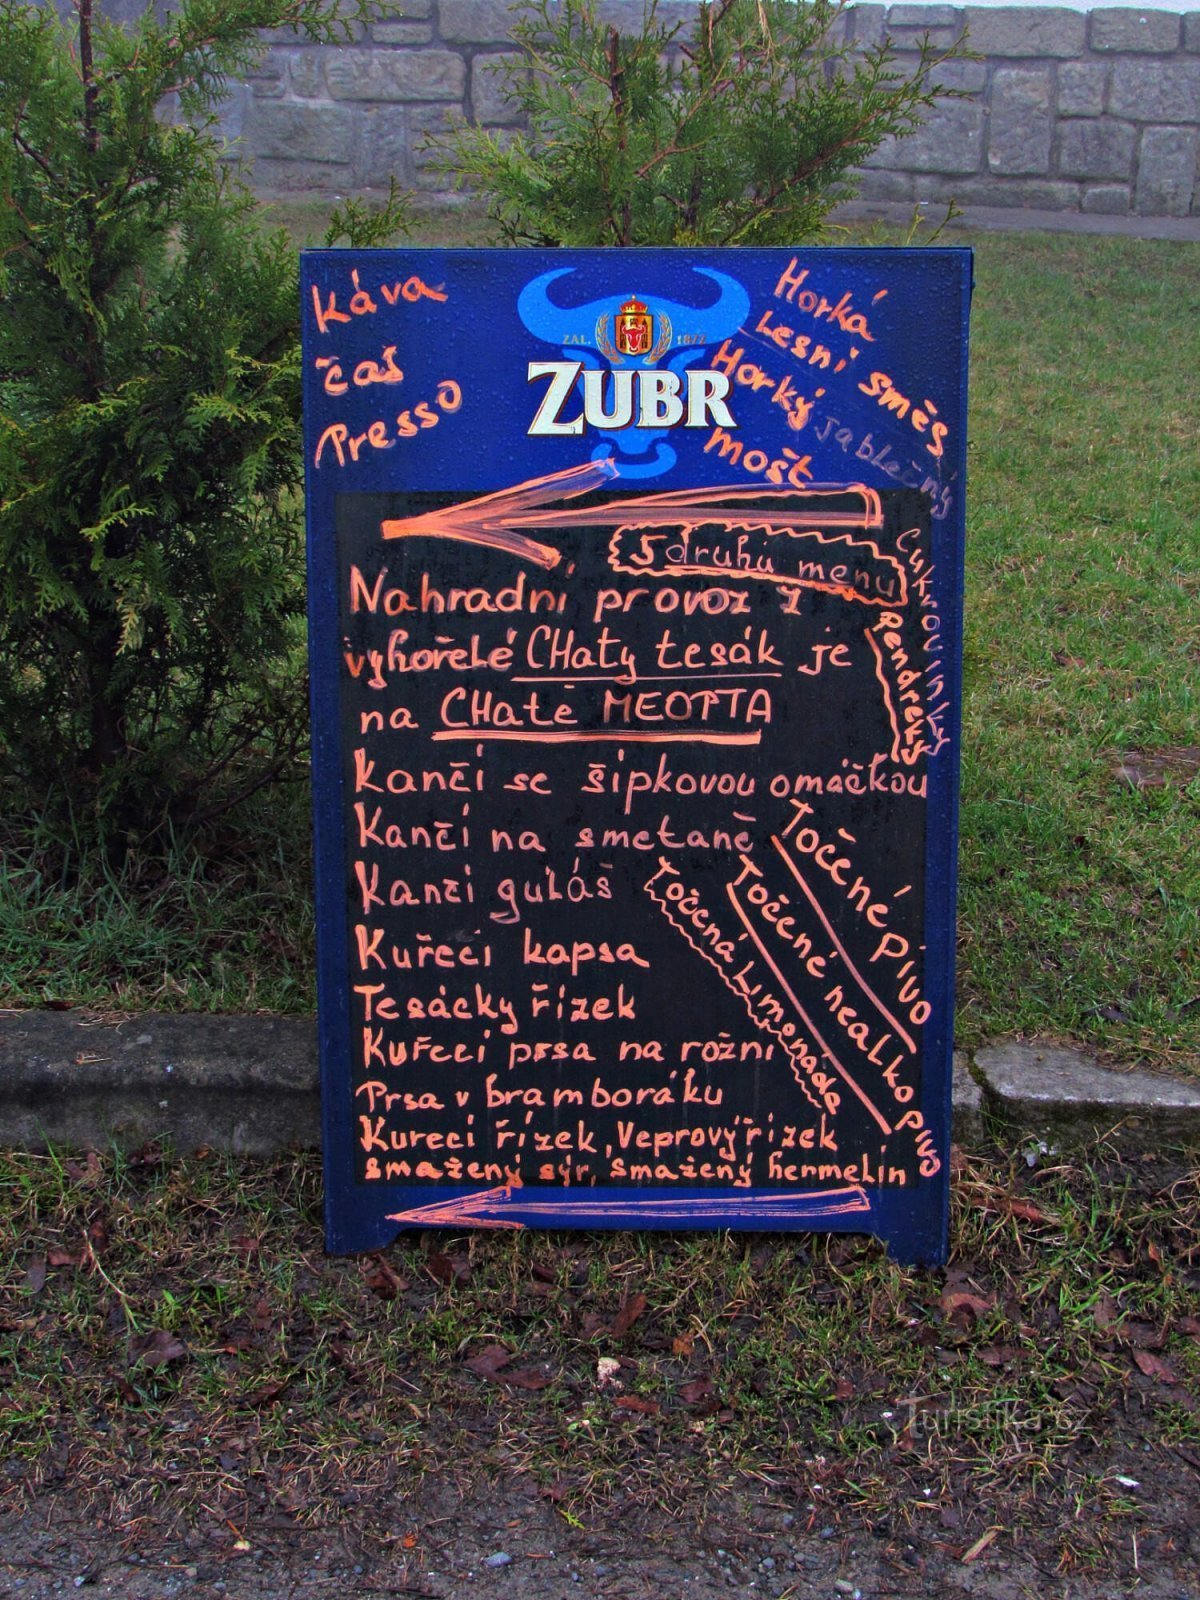 Káva
čaš
Presso
ZAL. 1872
ZUBR
Horká
Lesní směs
Horký jablečný
mošt
5 druhů menu
Cukrovinky
Pendreky
Nahradní provoz z
vyhořelé CHaty tesák je
na CHatě MEOPTA
Kančí se šípkovou omáčkou
Kančí na smetaně
Kanči guláš
Kuřecí kapsa
Tesácky řízek
Kuřecí prsa na rožni
Prsa v bramboráku
Kureci řízek, Veprový řízek
smažený sýr, Smažený hermelín
Točené Pivo
Točené nealko pivo
Točená Limonáda
Turistika.cz